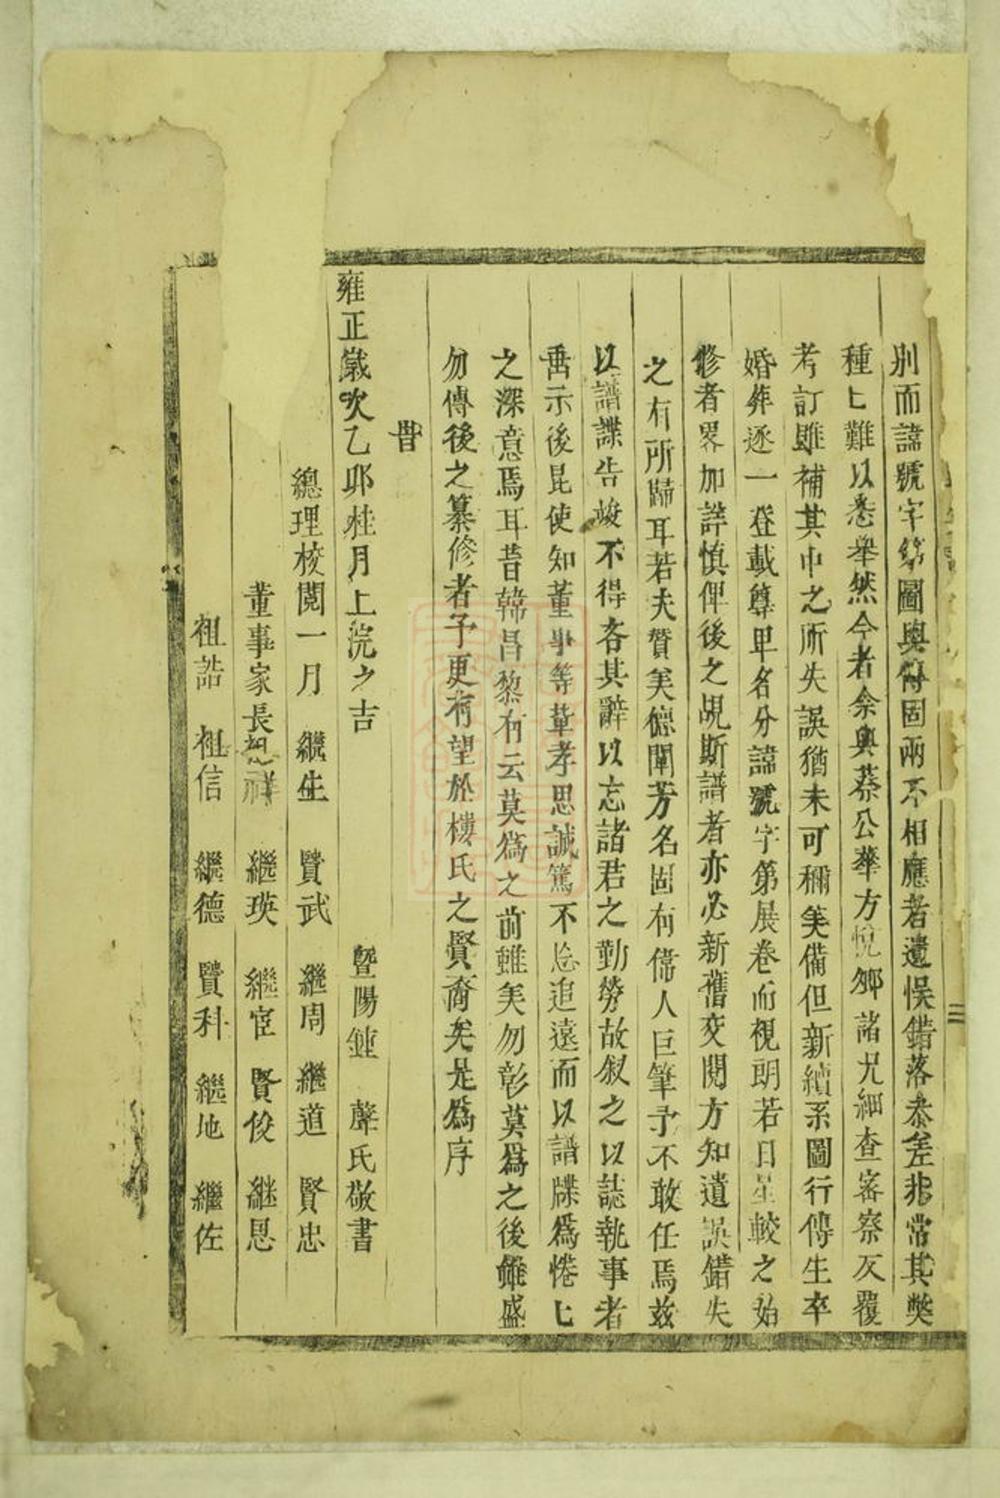 別而諱號字第圖與傳固兩不相應者遺悞錯落叅差非常其獘
種匕難以悉舉然今者余與蔡公華方悅鄉諸兄細查審察反覆
考訂雖補其中之所失誤猶未可稱美備但新續系圖行傳生卒
婚葬逐一登載尊卑名分諱號字第展卷而視明若日星較之始
修者畧加詳慎俾後之覘斯譜者亦必新舊交閱方知遺誤錯失
之有所歸耳若夫贊美德闡芳名固有偉人巨筆予不敢任焉兹
以譜諜告竣不得吝其辭以忘諸君之勤勞故叙之以誌執事者
畨示後昆使知董事等輩孝思誠篤不忘追遠而以譜牒爲惓匕
之深意焉耳昔韓昌黎有云莫爲之前雖美勿彰莫爲之後雖盛
勿傳後之纂修者予更有望於樓氏之賢裔矣是爲序
旹
雍正歲次乙卯桂月上浣之吉 曁陽鍾 聲氏敬書
總理校閱一月 繼生 賢武 繼周 繼道 賢忠
董事家長 祥 繼瑛 繼宦 賢俊 継恩
祖誥 祖信 繼德 賢科 繼地 繼佐